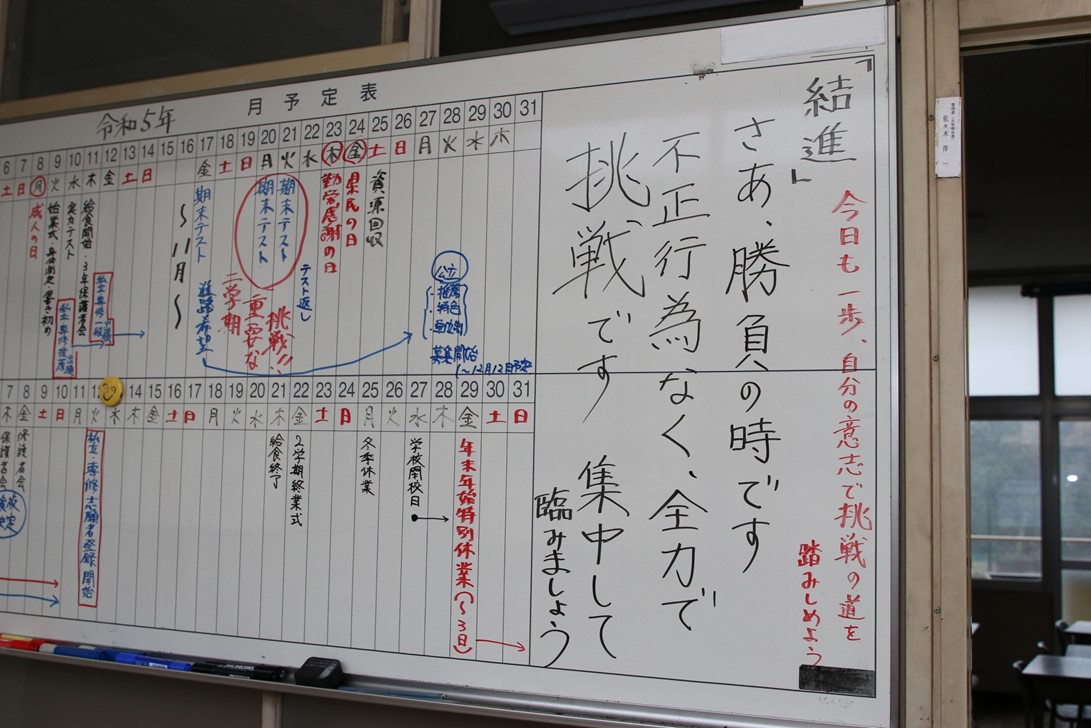 月予定表
令和5年
17 18 19 20 21 22 23 24 25 26 27 28 29 30 31
金 土 日 月 火 水 木 金 土 日 月 火 水 木
6 7 8 9 10 11 12 13 14 15 16
土 日 月 火 水 木 金 土 日
成人の日
実力テスト
〜11月〜
期末テスト
進路希望
期末テスト
期末テスト
二学期
重要な
挑戦!!
テスト返し
勤労感謝の日
県民の日
資源回収
公立
・推薦
募集開始
(〜12月12日予定
7 8 9 10 11 12 13 14 15 16 17 18 19 20 21 22 23 24 25 26 27 28 29 30 31
木 金 土 日 月 火 水 木 金 土 日 月 火 水 木 金 土 日 月 火 水 木 金 土 日
保護者会
保護者会
私立・専修志願者登録開始
給食終了
2学期終業式
冬季休業
学校閉校日
年末年始特別休業(〜3日)
「結進」
今日も一歩、自分の意志で挑戦の道を
踏みしめよう
さあ、勝負の時です
不正行為なく、全力で
挑戦です 集中して
臨みましょう